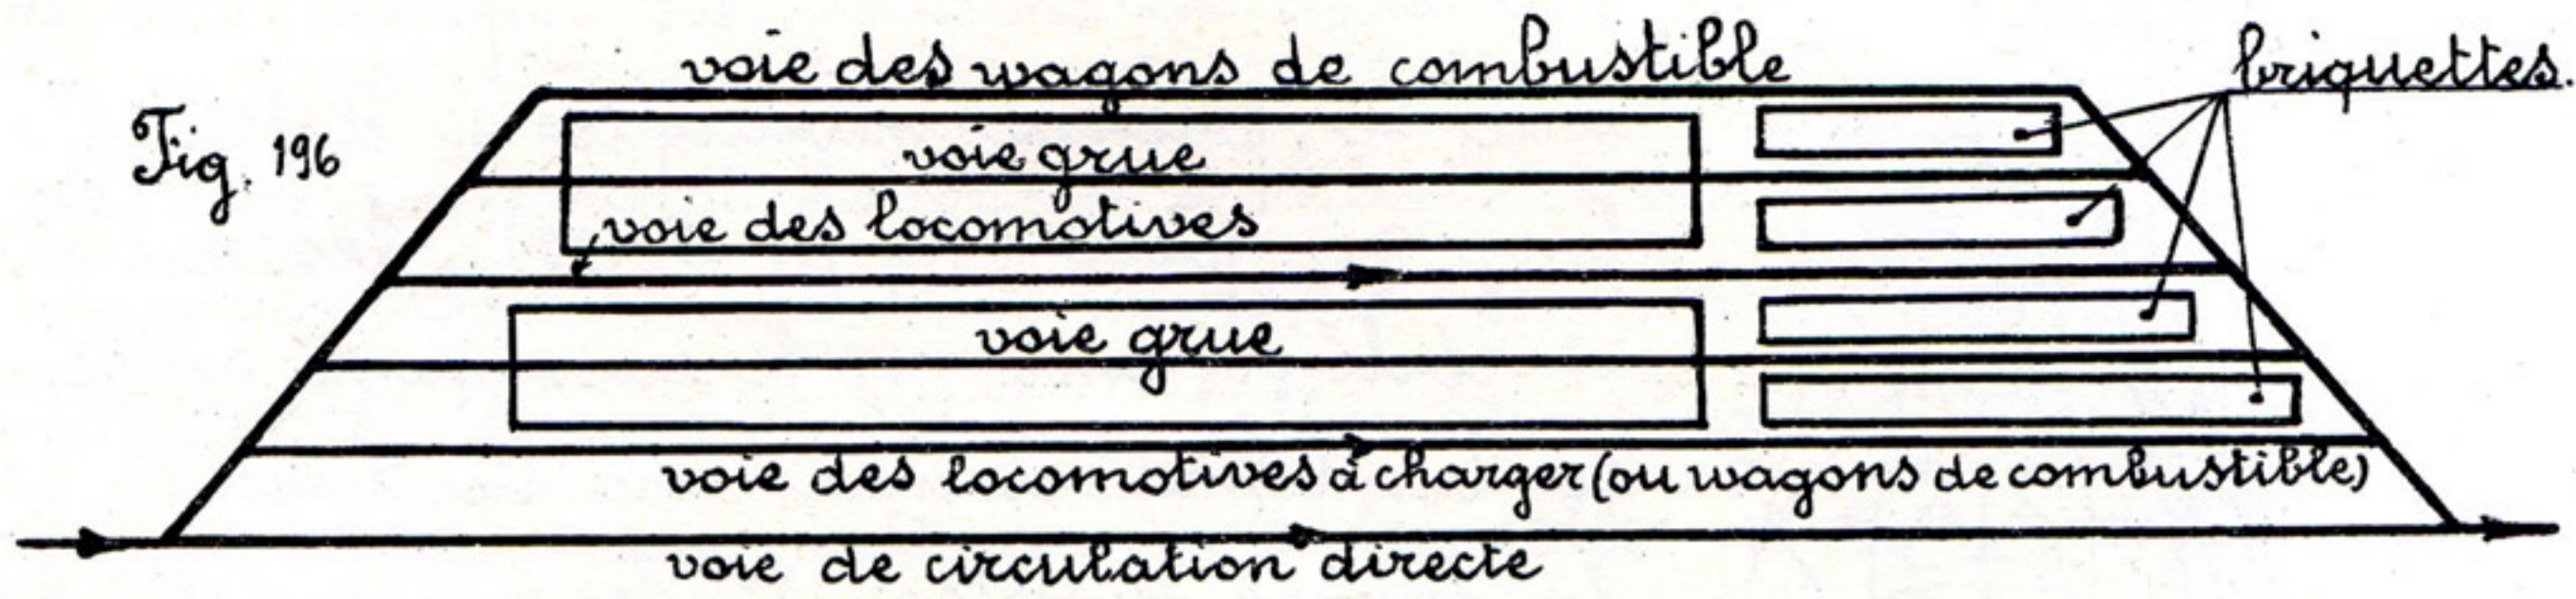 voie des wagons de combustible
briquettes.
Fig. 196
voie grue
voie des locomotives
voie grue
voie des locomotives à charger (ou wagons de combustible)
voie de circulation directe